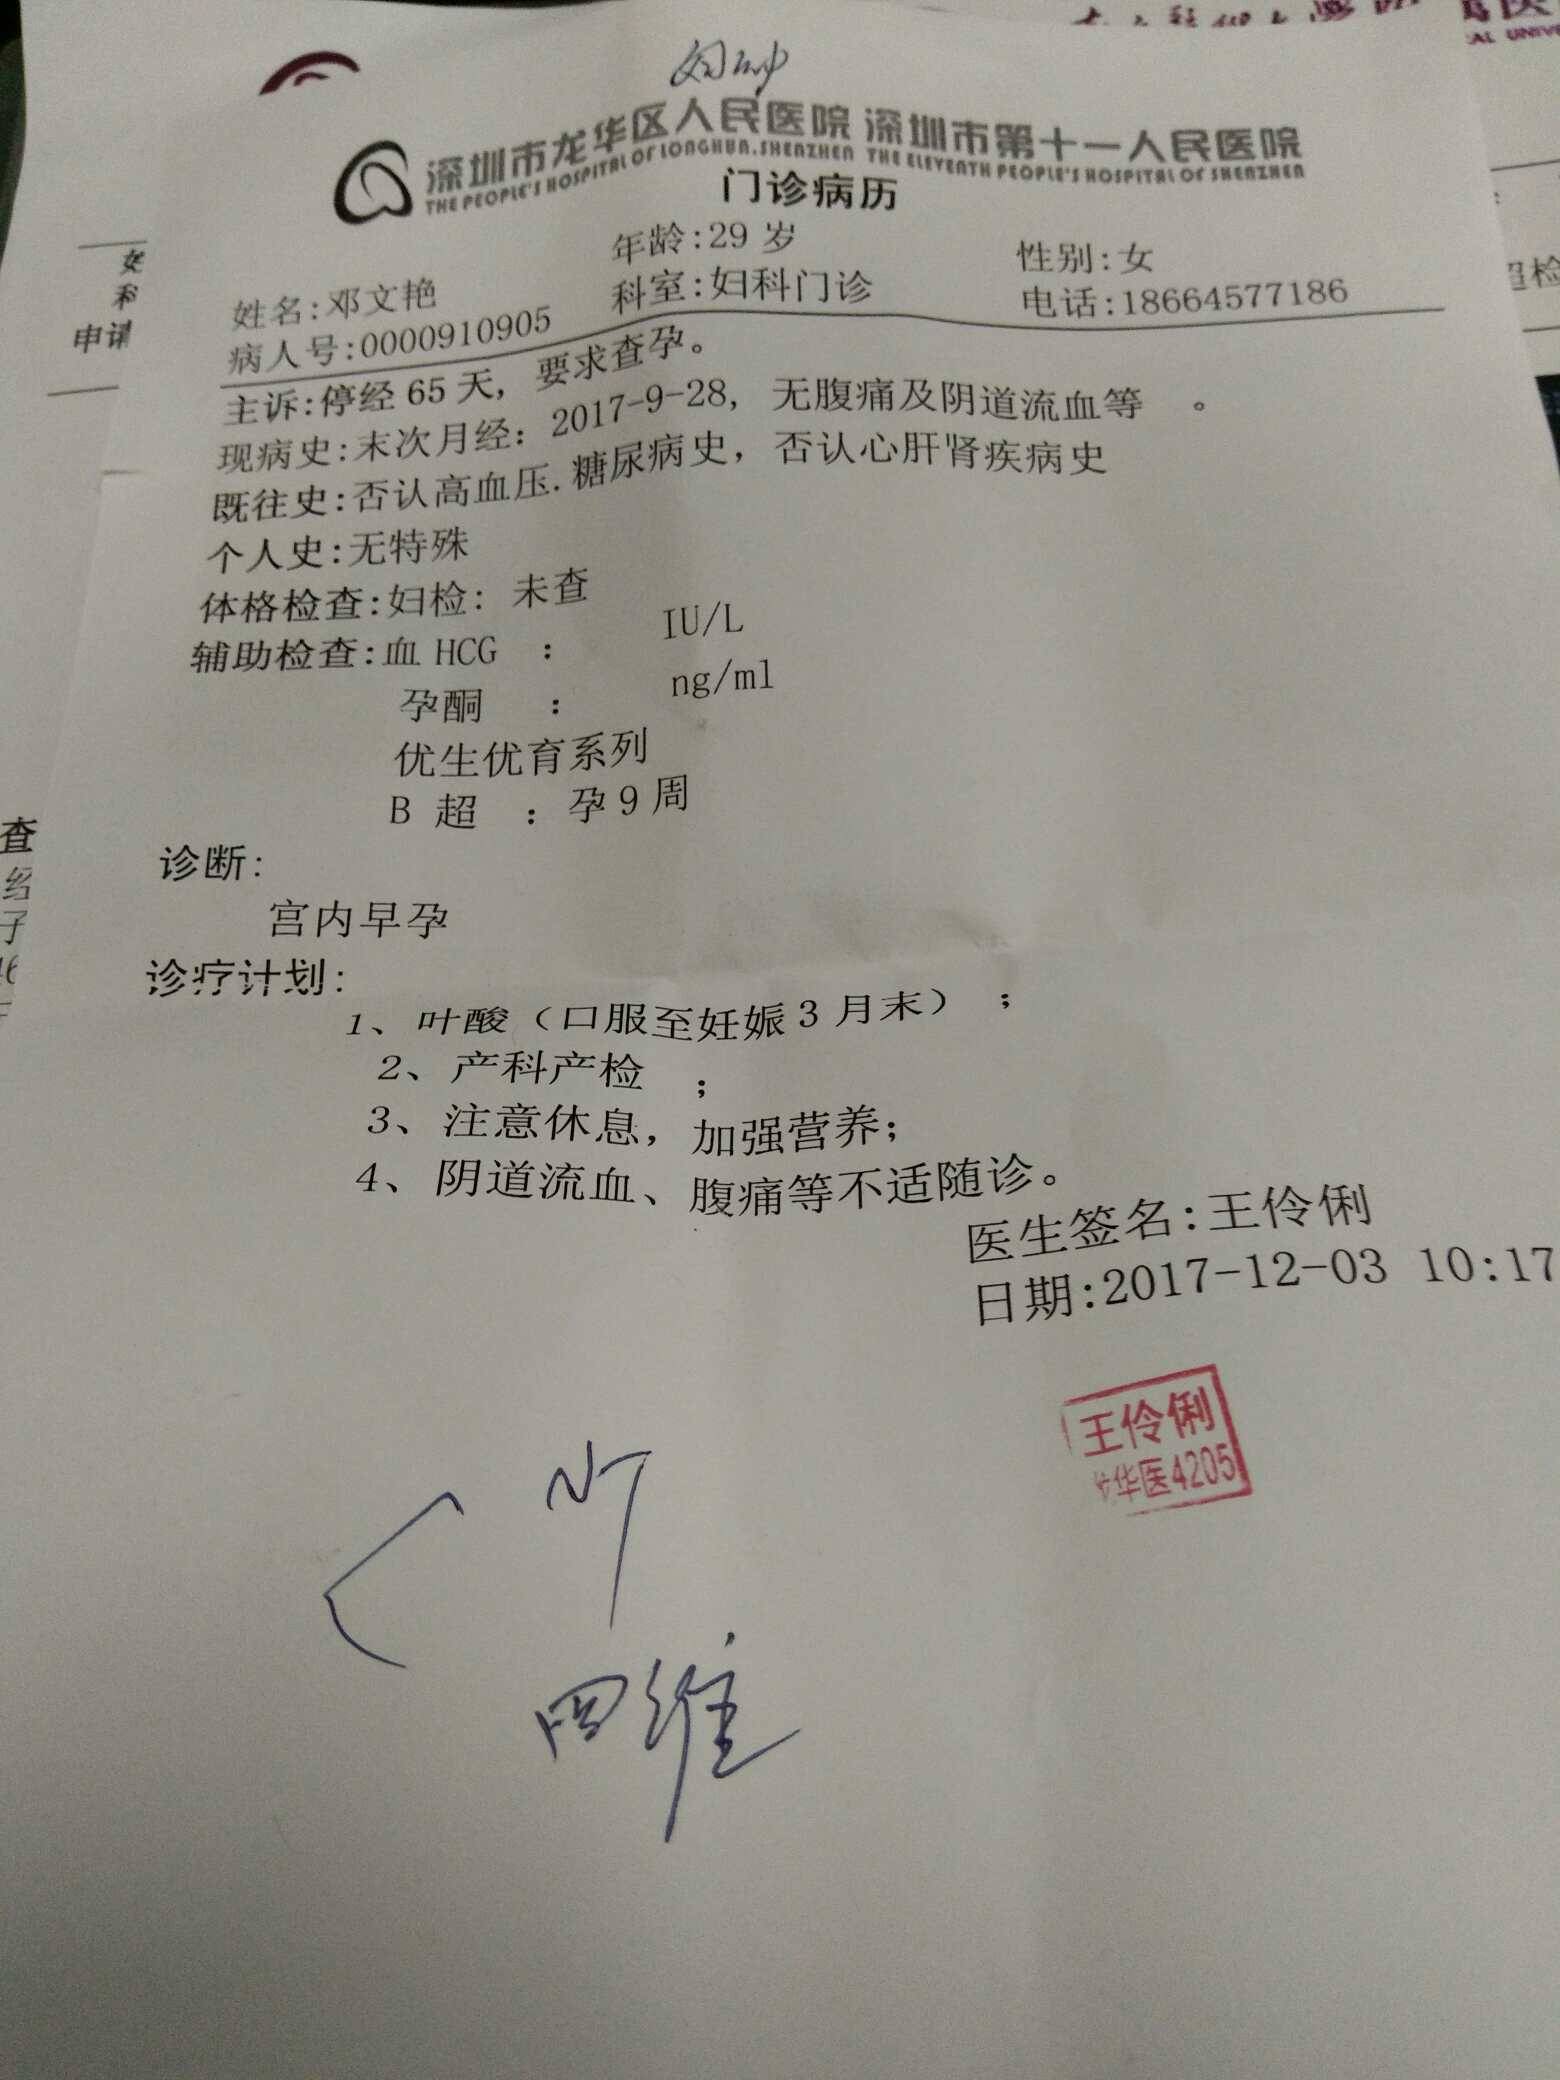 深圳市龙华区人民医院 深圳市第十一人民医院
THE PEOPLE'S HOSPITAL OF LONGHUA.SHENZHEN THE ELEVENTH PEOPLE'S HOSPITAL OF SHENZHEN
门诊病历
姓名:邓文艳 年龄:29 岁 性别:女
病人号:0000910905 科室:妇科门诊 电话:18664577186
主诉:停经 65 天, 要求查孕。
现病史:末次月经: 2017-9-28, 无腹痛及阴道流血等 。
既往史:否认高血压.糖尿病史, 否认心肝肾疾病史
个人史:无特殊
体格检查:妇检: 未查
辅助检查:血 HCG : IU/L
孕酮 : ng/ml
优生优育系列
B 超 : 孕 9 周
诊断:
宫内早孕
诊疗计划:
1、叶酸（口服至妊娠 3 月末） ;
2、产科产检 ;
3、注意休息, 加强营养;
4、阴道流血、腹痛等不适随诊。
医生签名:王伶俐
日期:2017-12-03 10:17
王伶俐
华医4205
NT
四维
申请
查
超检